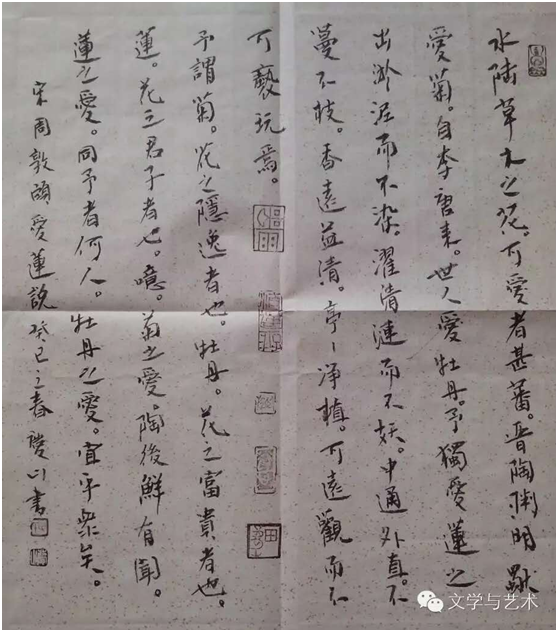 水陸草木之花。可愛者甚蕃。晋陶渊明獨
愛菊。自李唐来。世人愛牡丹。予獨愛蓮之
出淤泥而不染。濯清漣而不妖。中通外直。不
蔓不枝。香遠益清。亭〻净植。可遠觀而不
可褻玩焉。
予謂菊。花之隱逸者也。牡丹。花之富貴者也。
蓮。花之君子者也。噫。菊之愛。陶後鮮有聞。
蓮之愛。同予者何人。牡丹之愛。宜乎衆矣。
宋周敦頤愛蓮說癸巳之春 書
文学与艺术